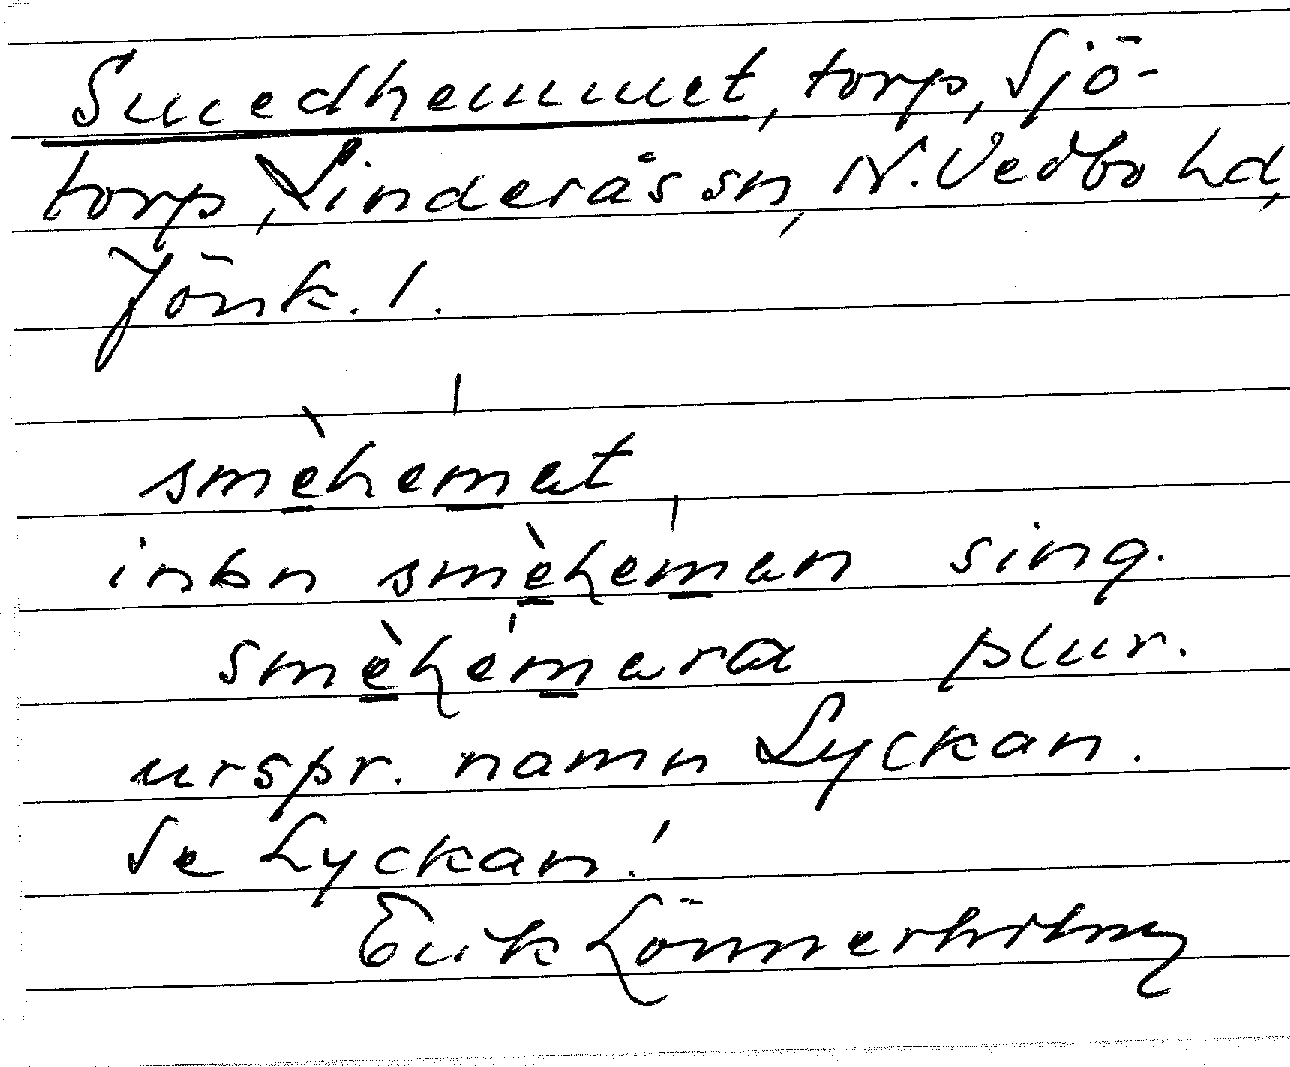 Smedhemmet, torp, Sjö-
torp, Linderås sn, N. Vedbo hd,
Jönk. l.
smèhemet
inbn smèhemen sing.
smèhemera plur.
urspr. namn Lyckan.
Se Lyckan!
Erik Lönnerholm